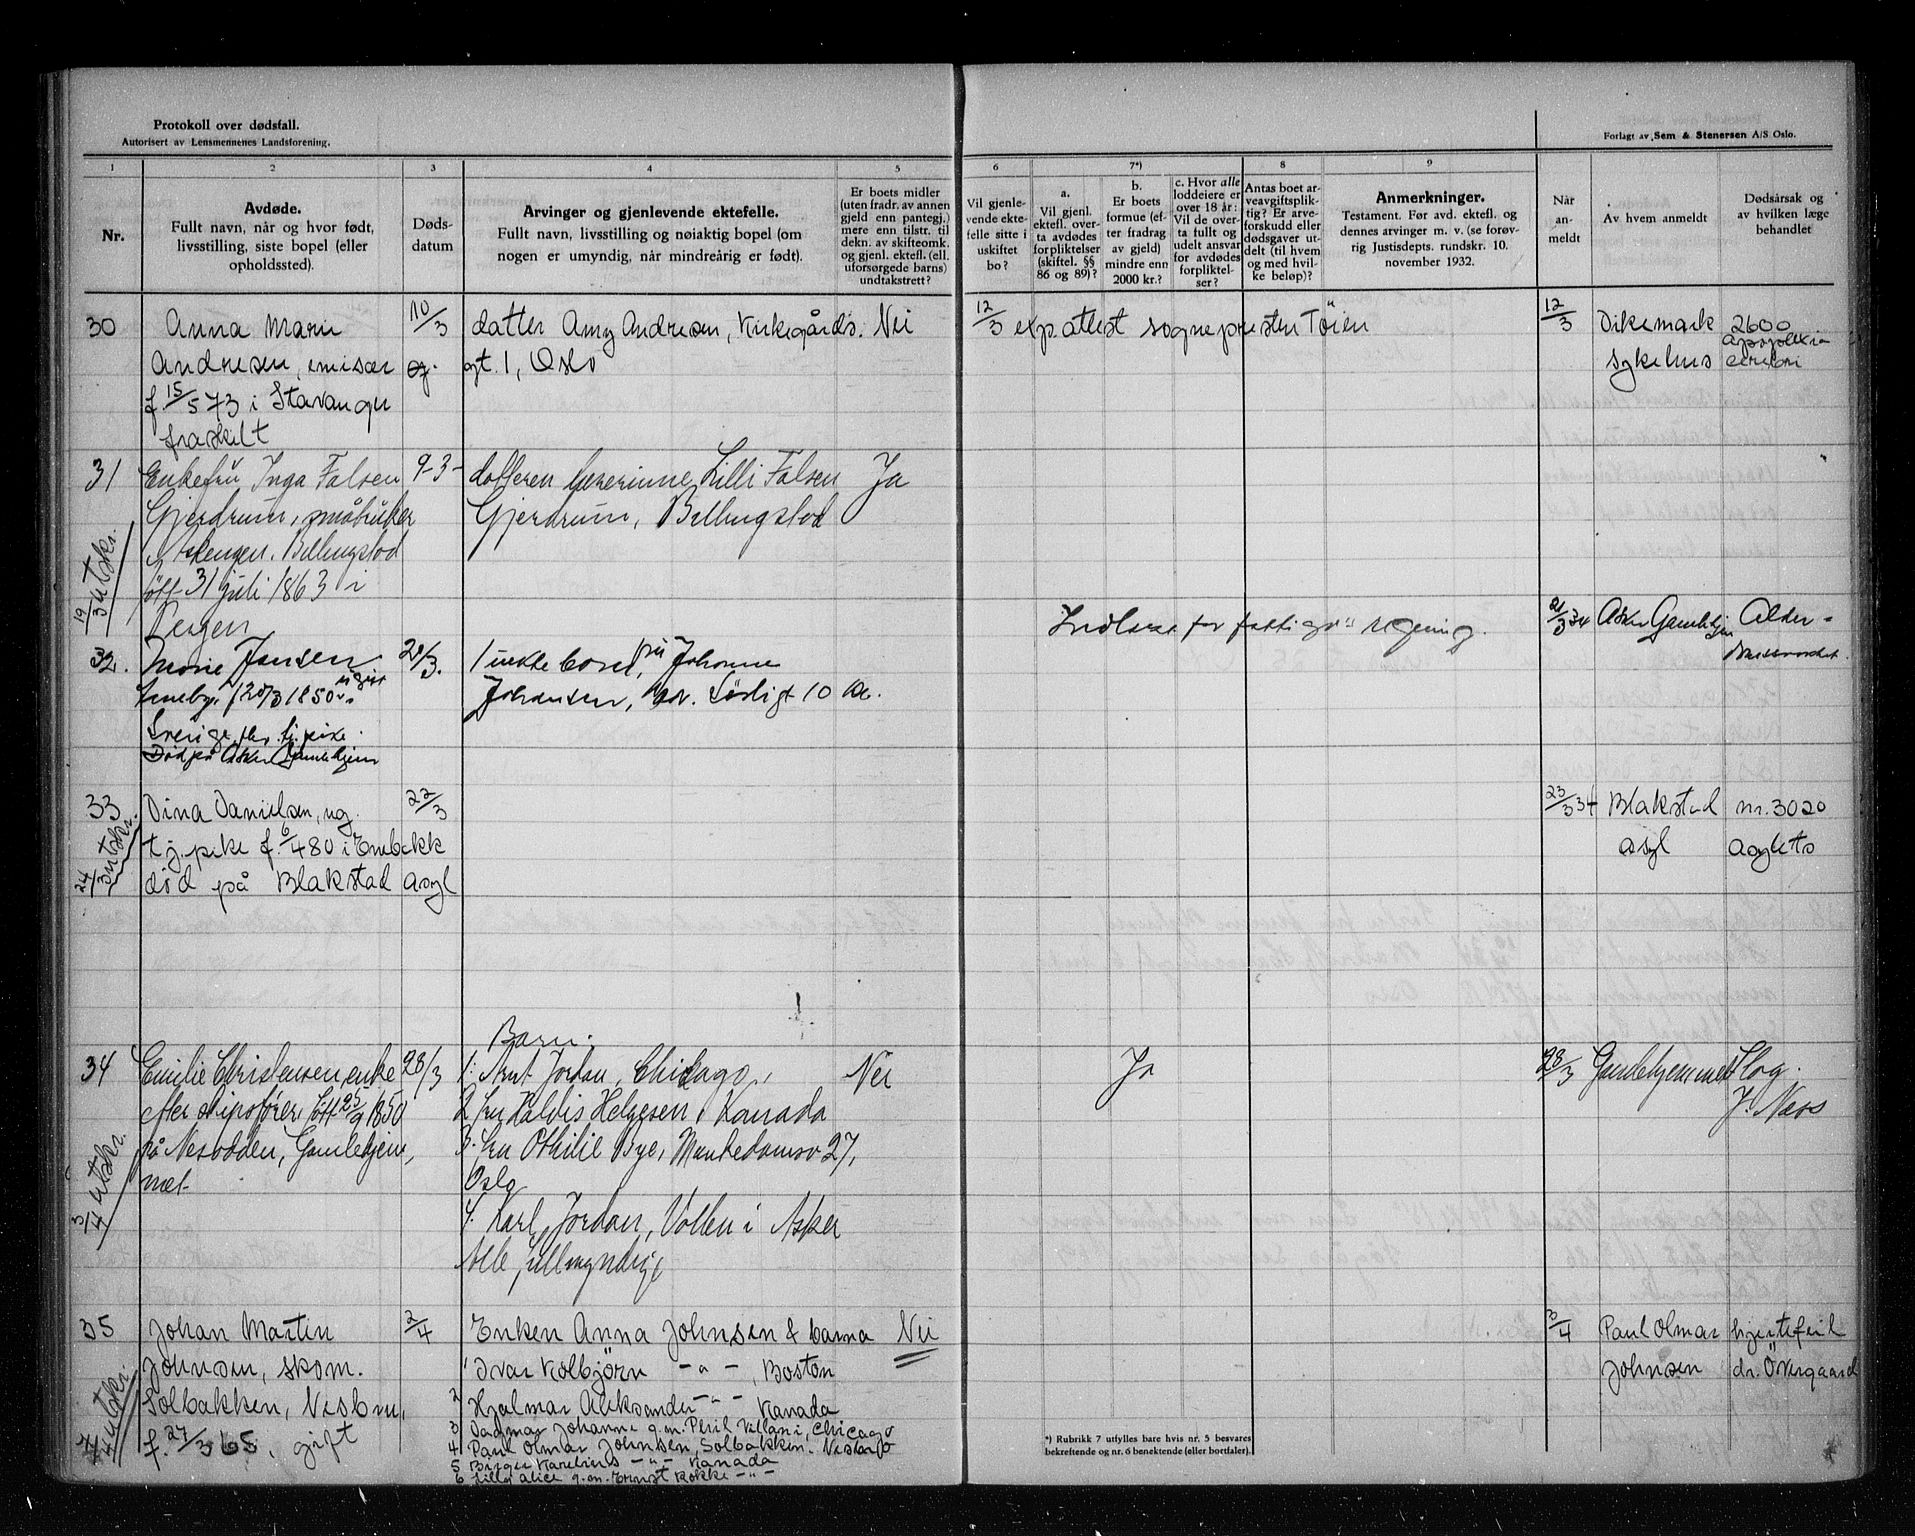 Protokoll over dødsfall.
Autorisert av Lensmennenes Landsforening.
Forlagt av Sem & Stenersen A/S Oslo.
1
2
3
4
5
6
7*)
8
9
Nr.
Avdøde.
Fullt navn, når og hvor født,
livsstilling, siste bopel (eller
opholdssted).
Døds-
datum
Arvinger og gjenlevende ektefelle.
Fullt navn, livsstilling og nøiaktig bopel (om
nogen er umyndig, når mindreårig er født).
Er boets midler
(uten fradr. av annen
gjeld enn pantegj.)
mere enn tilstr. til
dekn. av skifteomk.
og gjenl. ektefl. (ell.
uforsørgede barns)
undtakstrett?
Vil gjenle-
vende ekte-
felle sitte i
uskiftet
bo?
a.
Vil gjenl.
ektefl. over-
ta avdødes
forpliktelser
(skiftel. §§
86 og 89)?
b.
Er boets
formue (ef-
ter fradrag
av gjeld)
mindre enn
2000 kr.?
c. Hvor alle
loddeiere er
over 18 år:
Vil de over-
ta fullt og
udelt ansvar
for avdødes
forpliktel-
ser?
Antas boet ar-
veavgiftsplik-
tig? Er arve-
forskudd eller
dødsgaver ut-
delt (til hvem
og med hvil-
ke beløp)?
Anmerkninger.
Testament. Før avd. ektefl. og
dennes arvinger m. v. (se forøv-
rig Justisdepts. rundskr. 10.
november 1932.
Når
an-
meldt
Av hvem anmeldt
Dødsårsak og
av hvilken læge
behandlet
30
Anna Marie
Andresen, emisær
f. 15/5 73 i Stavanger
fraskilt
10/3
datter Amy Andresen, Kirkegårds.
gt. 1, Oslo
Nei
12/3 exp. attest sognepresten Töien
12/3
Dikemark
sykehus
2600
apoplexia
cerebri
31
19/3 utskr.
Enkefru Inga Falsen
Gjerdrum, småbruker
Billingstad
født 31 juli 1863 i
Bergen
9-3-
datteren lærerinne Lilli Falsen
Gjerdrum, Billingstad
Ja
32.
Marie Jansen
f. 20/3 1850 ugift
Sverige, tj. pike.
Død på Asker Gamlehjem
20/3.
1 uekte barn, fru Johanne
Johansen,
10
for fattigv. regning.
21/3 34
Asker Gamlehjem
Alder-
33
24/3 utskr.
Dina Danielsen, ug.
tj. pike f. 6/4 80 i Enebakk
død på Blakstad asyl
22/3
23/3 34
Blakstad
asyl
nr. 3020
asylets
34
3/4 utskr.
Emilie Christensen, enke
efter skipsfører, født 25/9 1850
på Nesodden, Gamlehjem,
met
28/3
Barn:
1. Jordan, Chicago,
2. fru Haldis Helgesen, Kanada
3. fru Othilie Bye, Munkedamsv 27,
Oslo
4. Karl Jordan, Vollen i Asker
Alle fullmyndige
Nei
Ja
28/3
Gamlehjemmet
Slag.
J. Næss
35
4/4 utskr.
Johan Martin
Johnsen, skom.
Solbakken, Nesbru,
f. 27/3 65, gift
2/4
Enken Anna Johnsen & barna
1 Ivar Kolbjörn - " - , Boston
2 Hjalmar Aleksander - " - Kanada
3 Dagmar Johanne g.m. Villani, Chicago
4 Paul Olmar Johnsen, Solbakken. Nesbru
5 Birger Karelius - " - Kanada
6 Lilly Alice g.m. Ernst Kokke - " -
Nei
3/4
Paul Olmar
Johnsen
hjertefeil
dr. Övergaard
*) Rubrikk 7 utfylles bare hvis nr. 5 besvares
bekreftende og nr. 6 benektende (eller bortfaler).